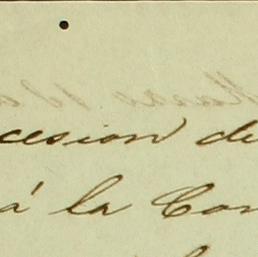 cesion de
á la Con